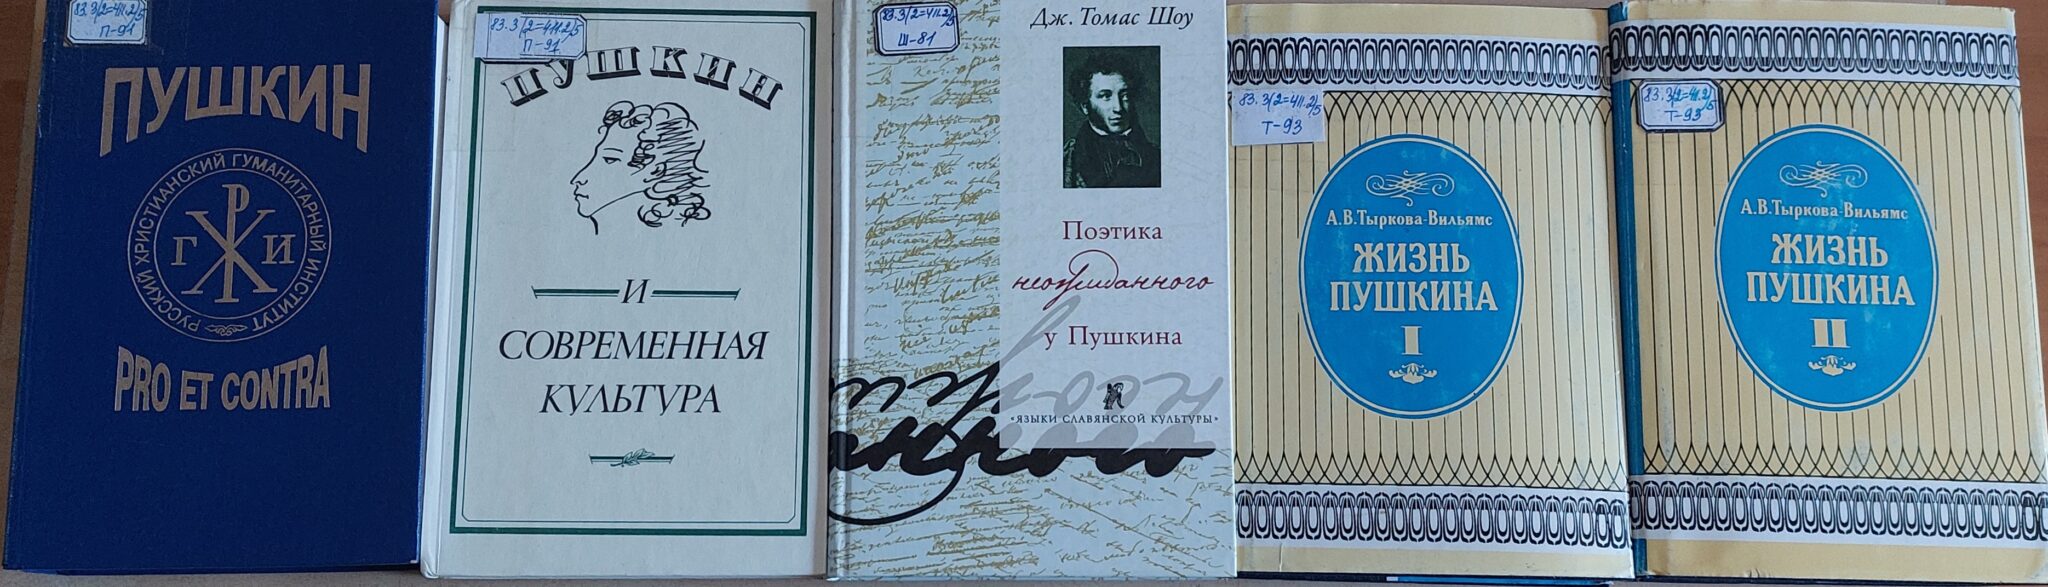 83.3/2=411.2/5
П-91
ПУШКИН
РУССКИЙ ХРИСТИАНСКИЙ ГУМАНИТАРНЫЙ ИНСТИТУТ
Р
Г Х И
PRO ET CONTRA
83.3/2=411.2/5
П-91
ПУШКИН
И
СОВРЕМЕННАЯ
КУЛЬТУРА
83.3/2=411.2/5
Ш-81
Дж. Томас Шоу
Поэтика
неожиданного
у Пушкина
«ЯЗЫКИ СЛАВЯНСКОЙ КУЛЬТУРЫ»
83.3/2=411.2/5
Т-93
А.В.Тыркова-Вильямс
ЖИЗНЬ
ПУШКИНА
I
83.3/2=411.2/5
Т-93
А.В.Тыркова-Вильямс
ЖИЗНЬ
ПУШКИНА
II